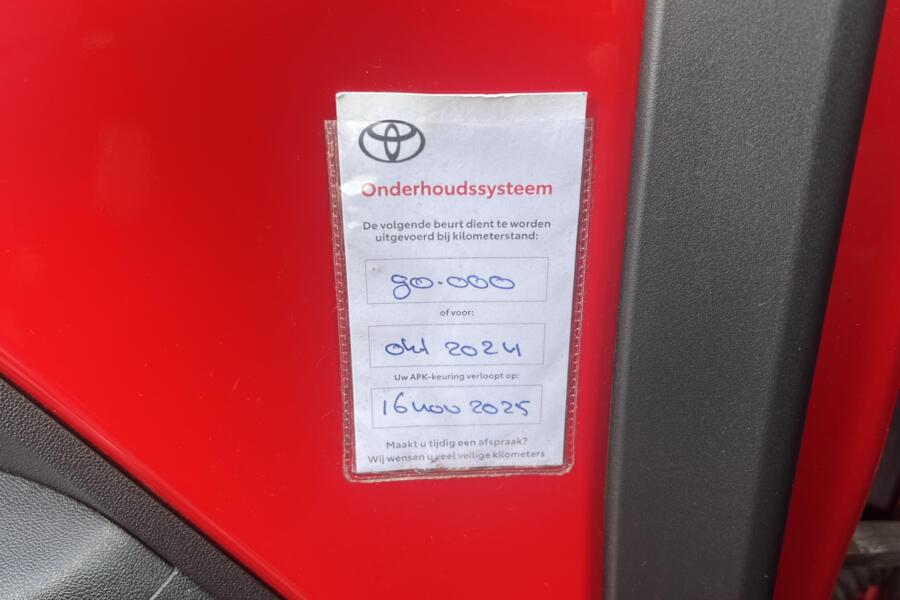 Onderhoudssysteem
De volgende beurt dient te worden
uitgevoerd bij kilometerstand:
90.000
of voor:
okt 2024
Uw APK-keuring verloopt op:
16 nov 2025
Maakt u tijdig een afspraak?
Wij wensen u veel veilige kilometers